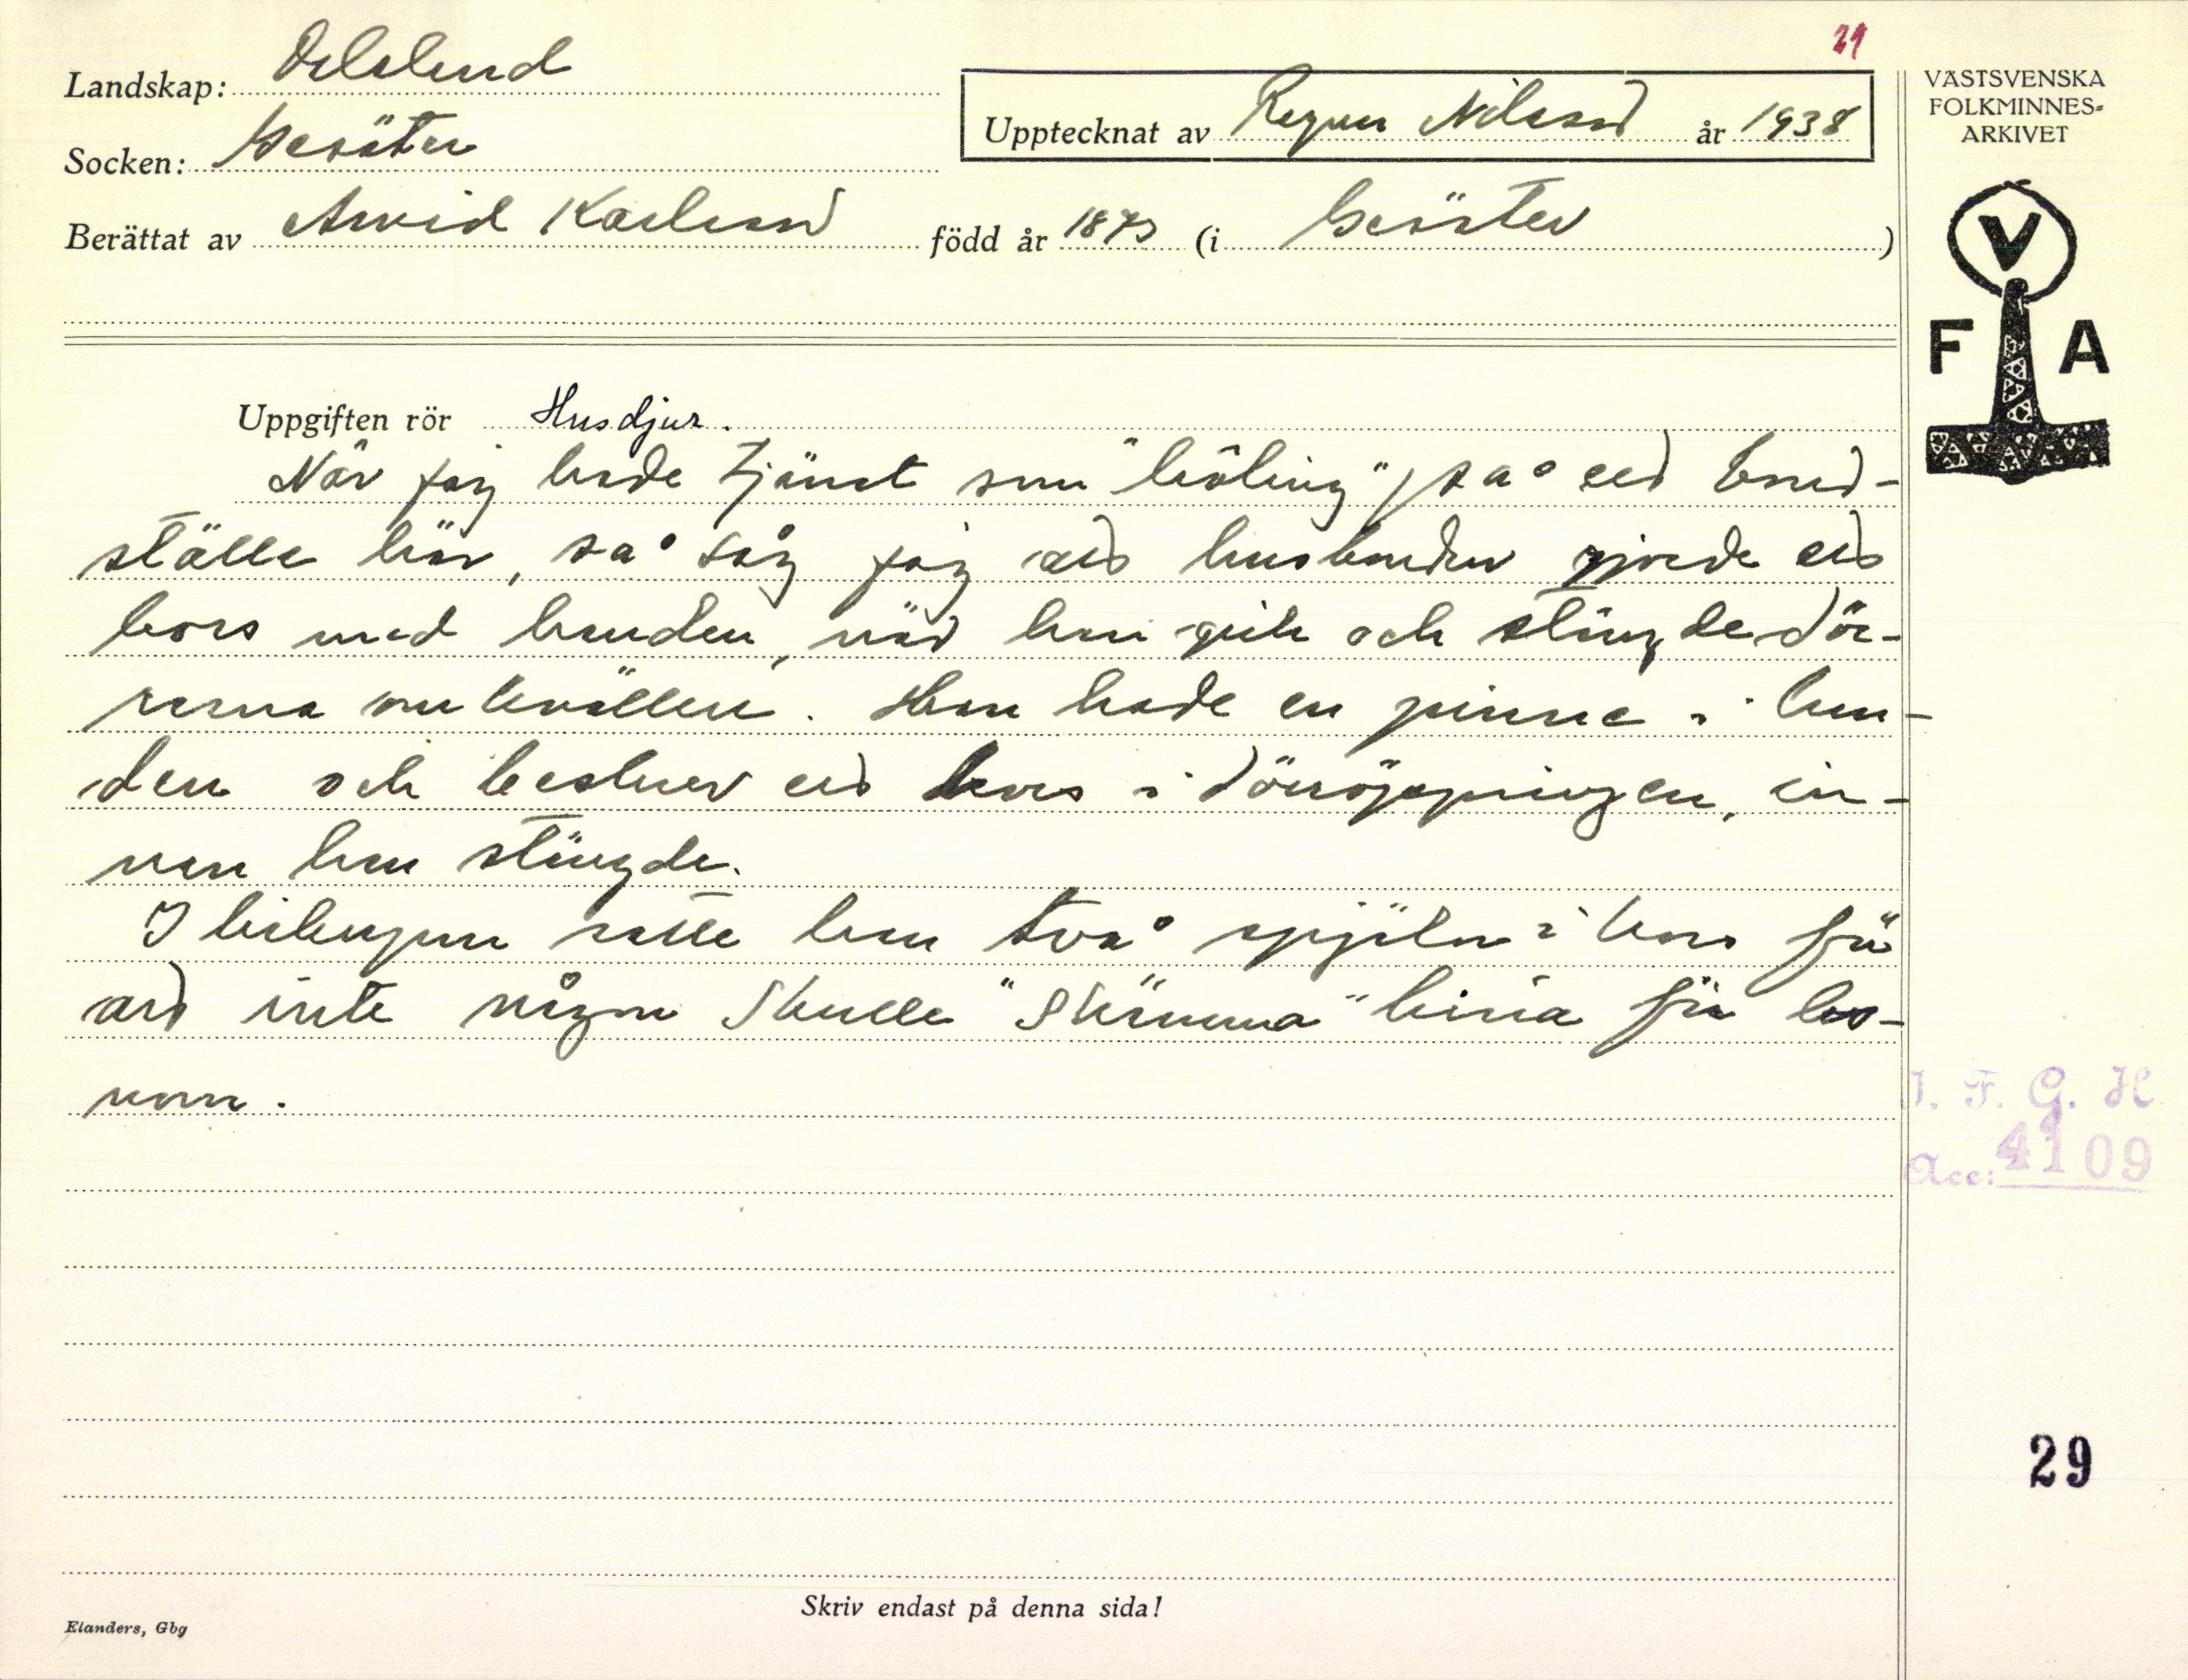 29
Landskap: Dalsland
Socken: Gesäter
Upptecknat av Ragnar Nilsson år 1938
Berättat av Arvid Karlsson född år 187 (i Gesäter )
VÄSTSVENSKA
FOLKMINNES-
ARKIVET
V
F A
Uppgiften rör Husdjur.
När jag hade tjänst som "höling" på ett bond-
ställe här, så såg jag att husbonden gjorde ett
kors med handen, när han gick och stängde dör-
rarna om kvällen. Han hade en pinne i han-
den och beskrev ett kors i dörröppningen, in-
nan han stängde.
I satte han två spjälor i kors för
att inte någon skulle "skämma" för ho-
nom.
I. F. G. H.
Acc: 4109
29
Skriv endast på denna sida!
Elanders, Gbg